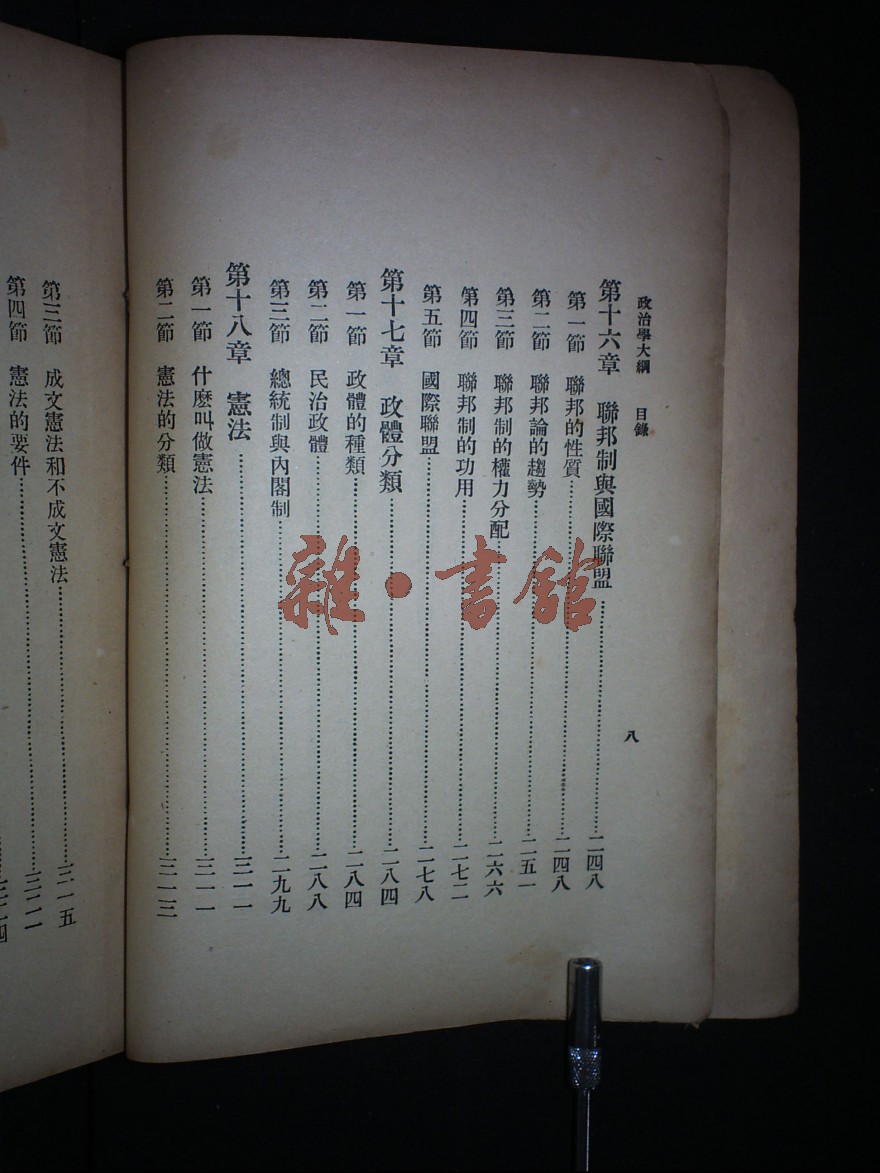 政治學大綱 目錄 八
第十六章 聯邦制與國際聯盟……二四八
第一節 聯邦的性質……二四八
第二節 聯邦論的趨勢……二五一
第三節 聯邦制的權力分配……二六六
第四節 聯邦制的功用……二七二
第五節 國際聯盟……二七八
第十七章 政體分類……二八四
第一節 政體的種類……二八四
第二節 民治政體……二八八
第三節 總統制與內閣制……二九九
第十八章 憲法……三一一
第一節 什麽叫做憲法……三一一
第二節 憲法的分類……三一三
第三節 成文憲法和不成文憲法……三一五
第四節 憲法的要件……三二一
雜·書館